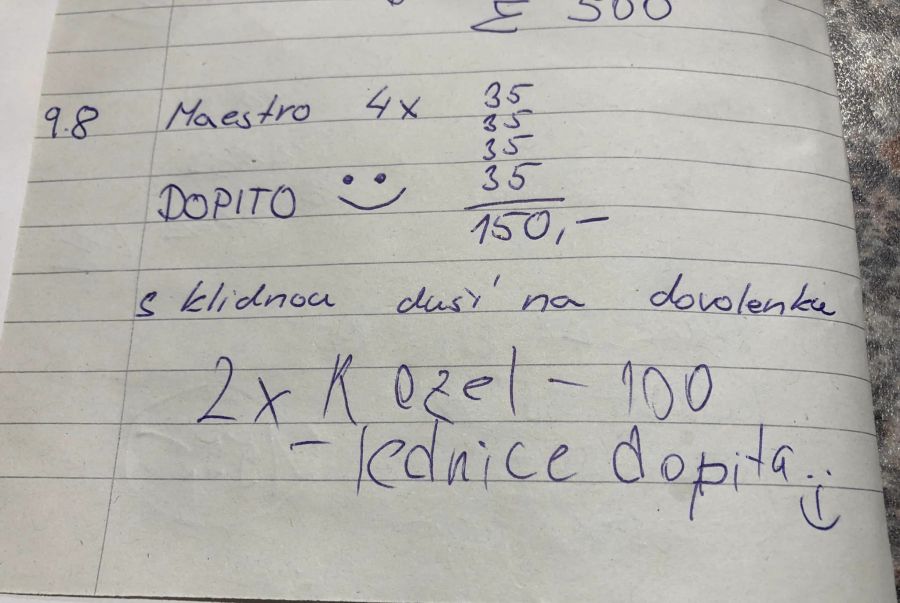 Σ 500
9.8 Maestro 4x 35
35
35
DOPITO 35
150,-
s klidnou duší na dovolenku
2x Kozel - 100
- lednice dopita